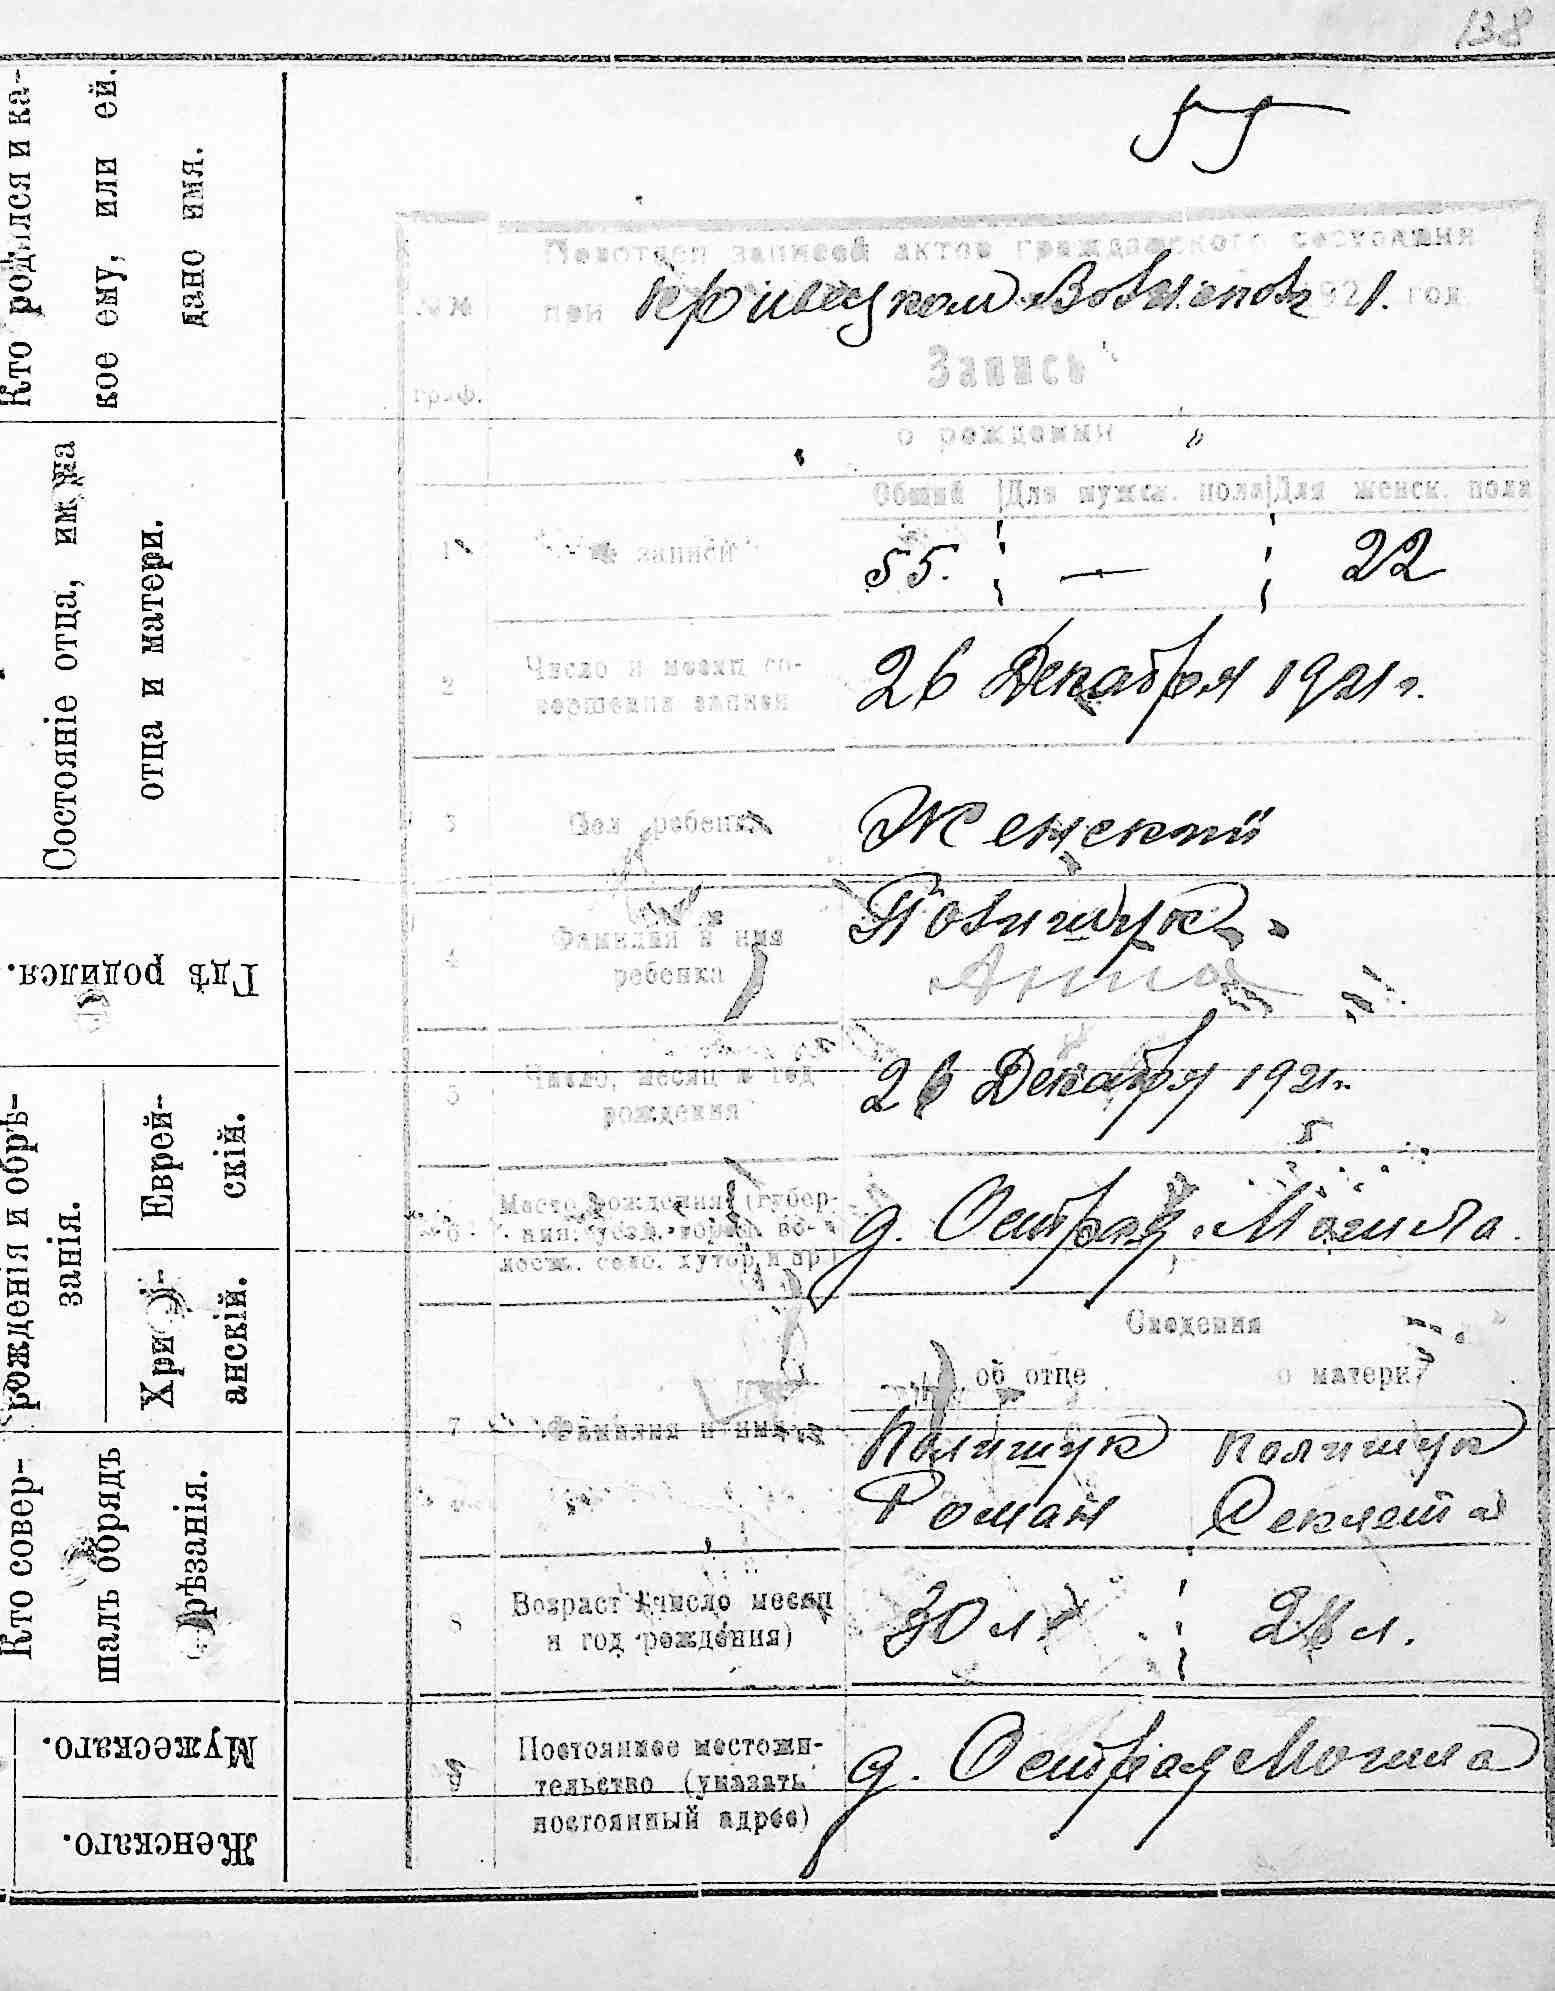 138
Кто родился и ка-
кое ему, или ей.
дано имя.
Состояніе отца, им на
отца и матери.
Гдѣ родился.
рожденія и обрѣ-
занія.
Еврей-
скій.
Хри
анскій.
Кто совер-
шалъ обрядъ
рѣзанія.
Мужескаго.
Женскаго.
55
записей актов гражданского состояния
№№ при 1921 год
граф.
Запись
о рождении
Общий Для мужск. пола Для женск. пола
1 записи 55. — 22
2 Число и месяц со-
вершения записи 26 Декабря 1921 г.
3 Пол ребенка Женский
4 Фамилия и имя
ребенка Полищук
Анна
5 Число, месяц и год
рождения 26 Декабря 1921 г.
6 Место рождения (губер-
ния, уезд, город, во-
лость, село, хутор и пр) д. Острая Могила.
Сведения
об отце о матери
7 Фамилия и имя Полищук Полищук
Роман Феклета
8 Возраст (число месяц
и год рождения) 30 л. л.
9 Постоянное местожи-
тельство (указать
постоянный адрес) д. Острая Могила